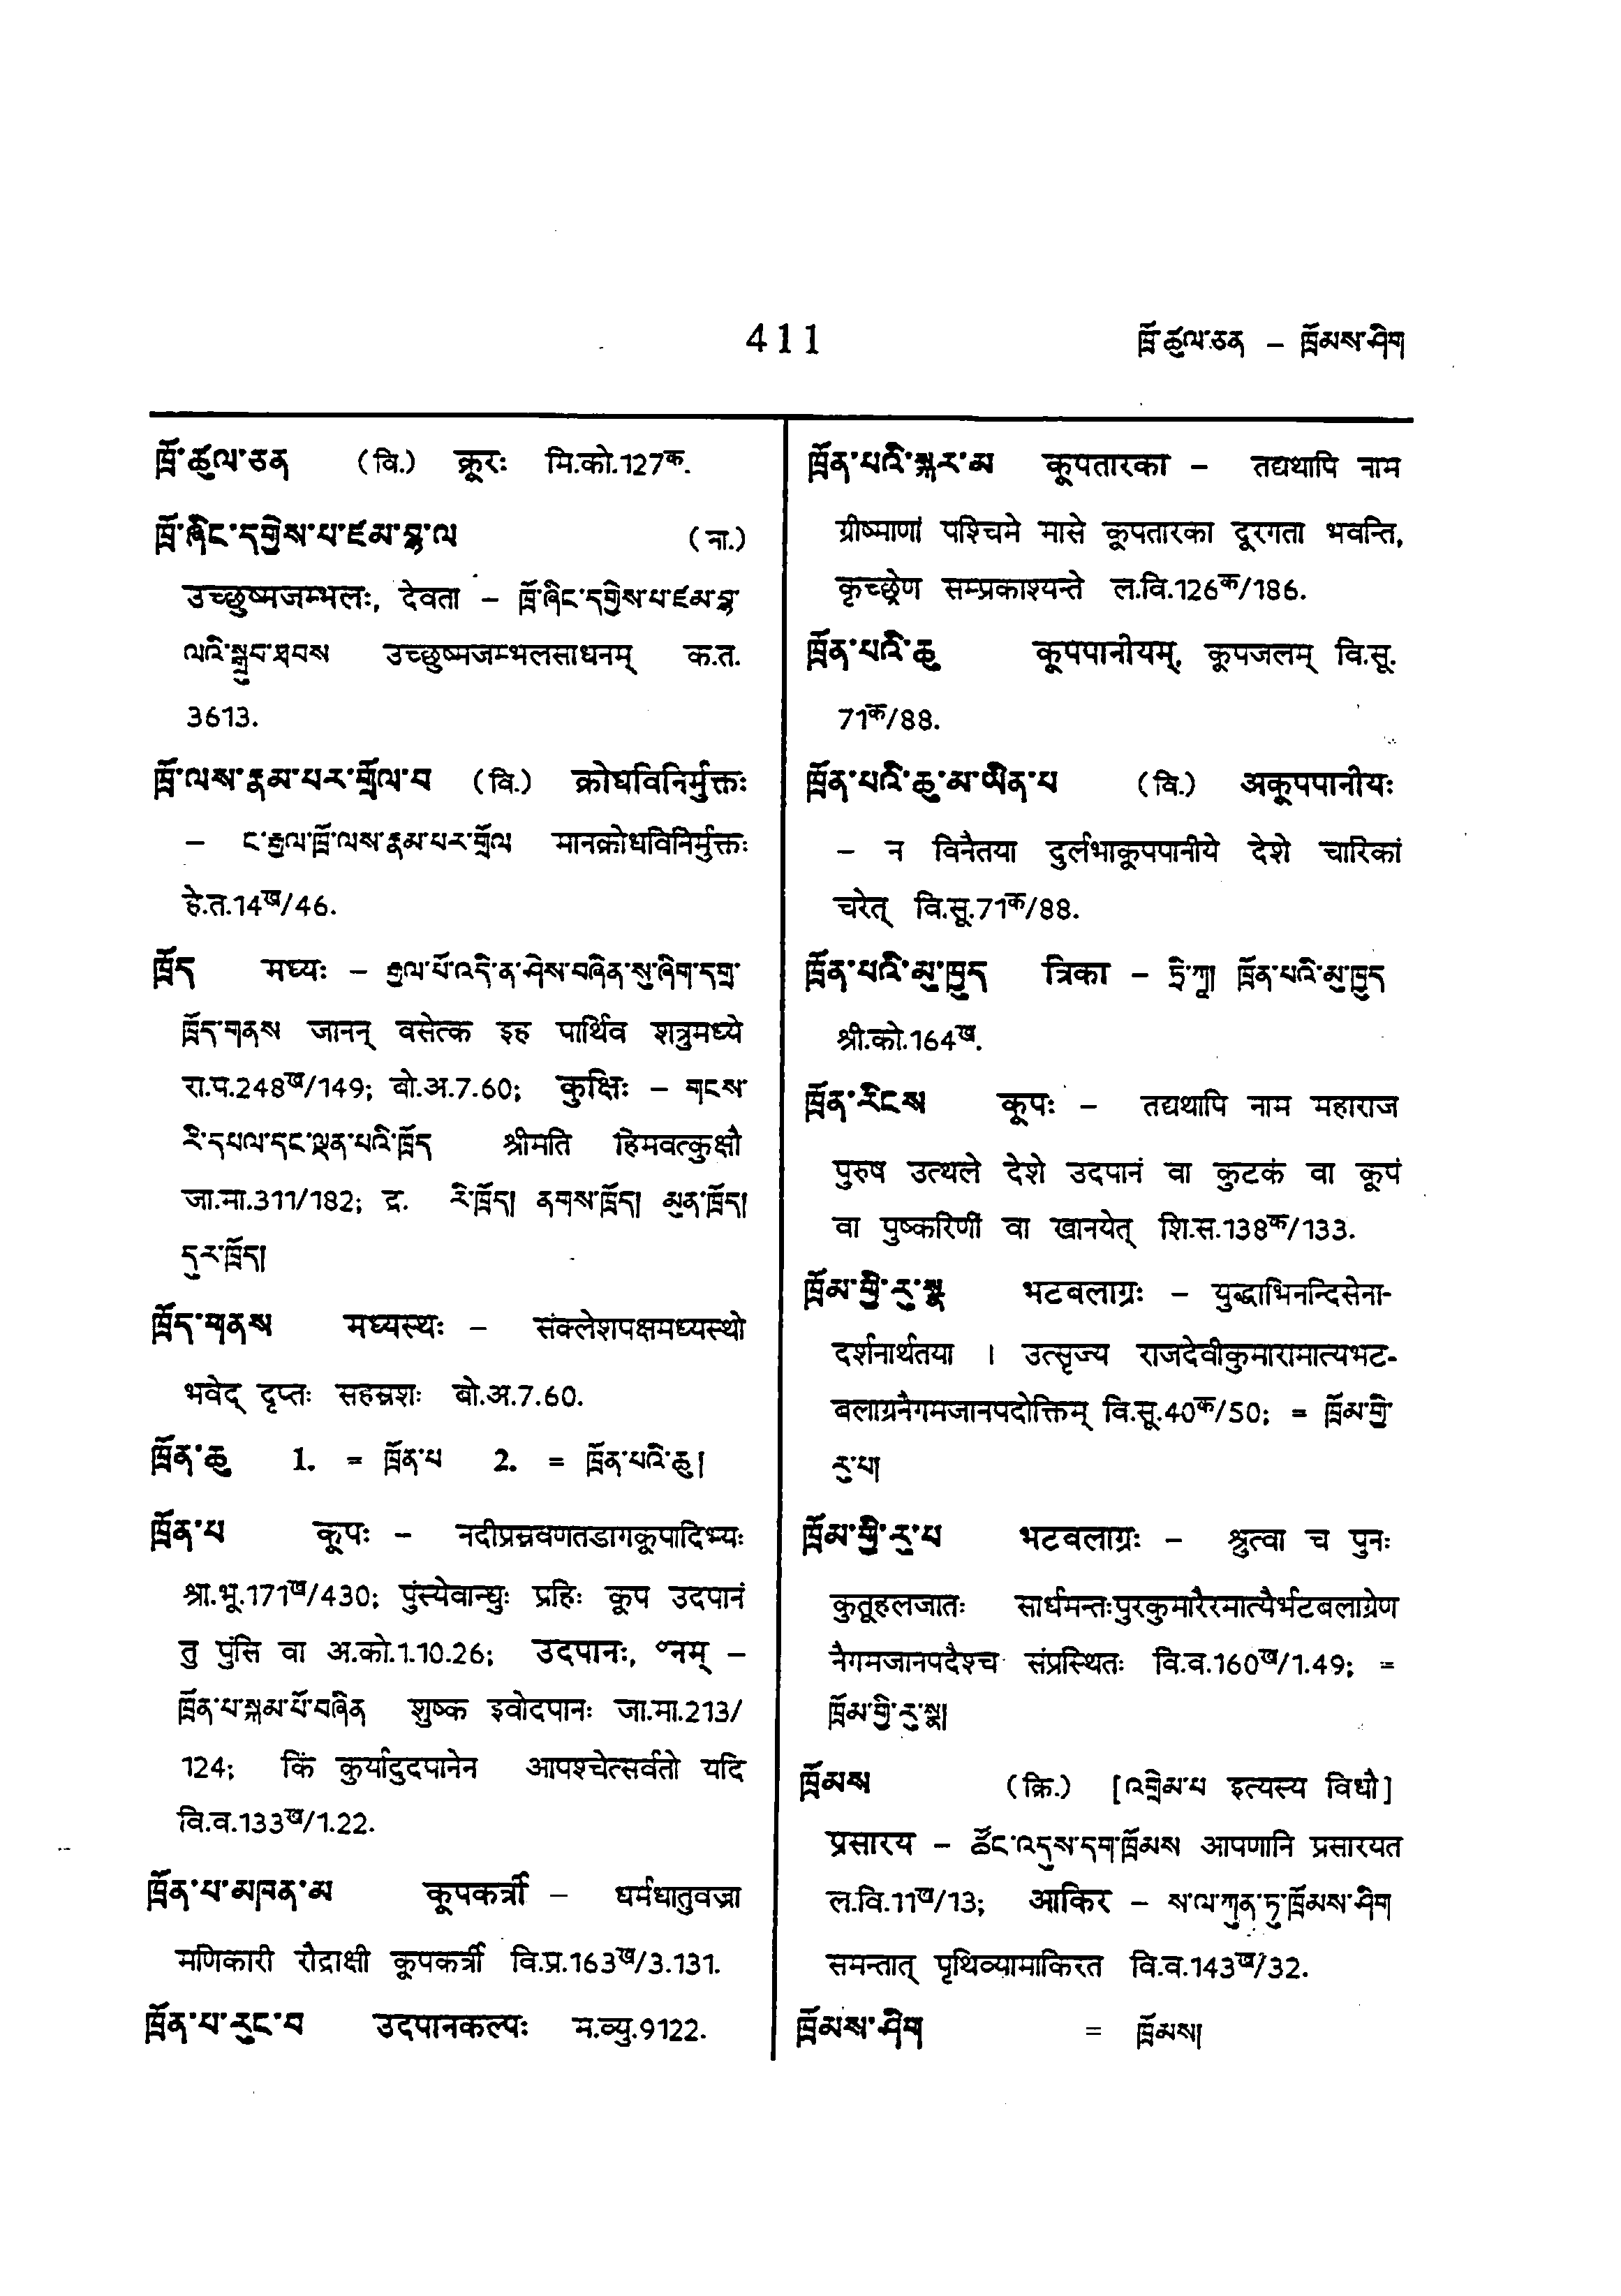 411
ཁྲོ་ཚུལ་ཅན – ཁྲོམས་ཤིག
ཁྲོ་ཚུལ་ཅན (वि.) क्रूरः मि.को.127क.
ཁྲོ་ཞིང་དགྱེས་པ་ཛམ་བྷ་ལ (ना.)
उच्छुष्मजम्भलः, देवता – ཁྲོ་ཞིང་དགྱེས་པ་ཛམ་བྷ་
ལའི་སྒྲུབ་ཐབས उच्छुष्मजम्भलसाधनम् क.त.
3613.
ཁྲོ་ལས་རྣམ་པར་གྲོལ་བ (वि.) क्रोधविनिर्मुक्तः
– ང་རྒྱལ་ཁྲོ་ལས་རྣམ་པར་གྲོལ मानक्रोधविनिर्मुक्तः
हे.त.14ख/46.
ཁྲོད मध्यः – རྒྱལ་པོ་འདི་ན་ཤེས་བཞིན་སུ་ཞིག་དགྲ་
ཁྲོད་གནས जानन् वसेत्क इह पार्थिव शत्रुमध्ये
रा.प.248ख/149; बो.अ.7.60; कुक्षिः – གངས་
རི་དཔལ་དང་ལྡན་པའི་ཁྲོད श्रीमति हिमवत्कुक्षौ
जा.मा.311/182; द्र. རི་ཁྲོད། ནགས་ཁྲོད། མུན་ཁྲོད།
དུར་ཁྲོད།
ཁྲོད་གནས मध्यस्थः – संक्लेशपक्षमध्यस्थो
भवेद् दृप्तः सहस्रशः बो.अ.7.60.
ཁྲོན་ཆུ 1. = ཁྲོན་པ 2. = ཁྲོན་པའི་ཆུ།
ཁྲོན་པ कूपः – नदीप्रस्रवणतडागकूपादिभ्यः
श्रा.भू.171ख/430; पुंस्येवान्धुः प्रहिः कूप उदपानं
तु पुंसि वा अ.को.1.10.26; उदपानः, °नम् –
ཁྲོན་པ་སྐམ་པོ་བཞིན शुष्क इवोदपानः जा.मा.213/
124; किं कुर्यादुदपानेन आपश्चेत्सर्वतो यदि
वि.व.133ख/1.22.
ཁྲོན་པ་མཁན་མ कूपकर्त्री – धर्मधातुवज्रा
मणिकारी रौद्राक्षी कूपकर्त्री वि.प्र.163ख/3.131.
ཁྲོན་པ་རུང་བ उदपानकल्पः म.व्यु.9122.
ཁྲོན་པའི་སྐར་མ कूपतारका – तद्यथापि नाम
ग्रीष्माणां पश्चिमे मासे कूपतारका दूरगता भवन्ति,
कृच्छ्रेण सम्प्रकाश्यन्ते ल.वि.126क/186.
ཁྲོན་པའི་ཆུ कूपपानीयम्, कूपजलम् वि.सू.
71क/88.
ཁྲོན་པའི་ཆུ་མ་ཡིན་པ (वि.) अकूपपानीयः
– न विनैतया दुर्लभाकूपपानीये देशे चारिकां
चरेत् वि.सू.71क/88.
ཁྲོན་པའི་མུ་ཁྱུད त्रिका – ཏྲི་ཀཱ། ཁྲོན་པའི་མུ་ཁྱུད
श्री.को.164ख.
ཁྲོན་རིངས कूपः – तद्यथापि नाम महाराज
पुरुष उत्थले देशे उदपानं वा कुटकं वा कूपं
वा पुष्करिणीं वा खानयेत् शि.स.138क/133.
ཁྲོམ་གྱི་རུ་སྣ भटबलाग्रः – युद्धाभिनन्दिसेना-
दर्शनार्थतया । उत्सृज्य राजदेवीकुमारामात्यभट-
बलाग्रनैगमजानपदोक्तिम् वि.सू.40क/50; = ཁྲོམ་གྱི་
རུ་པ།
ཁྲོམ་གྱི་རུ་པ भटबलाग्रः – श्रुत्वा च पुनः
कुतूहलजातः सार्धमन्तःपुरकुमारैरमात्यैर्भटबलाग्रेण
नैगमजानपदैश्च संप्रस्थितः वि.व.160ख/1.49; =
ཁྲོམ་གྱི་རུ་སྣ།
ཁྲོམས (क्रि.) [འགྲེམ་པ इत्यस्य विधौ]
प्रसारय – ཚོང་འདུས་དག་ཁྲོམས आपणानि प्रसारयत
ल.वि.11ख/13; आकिर – ས་ལ་ཀུན་ཏུ་ཁྲོམས་ཤིག
समन्तात् पृथिव्यामाकिरत वि.व.143ख/32.
ཁྲོམས་ཤིག = ཁྲོམས།